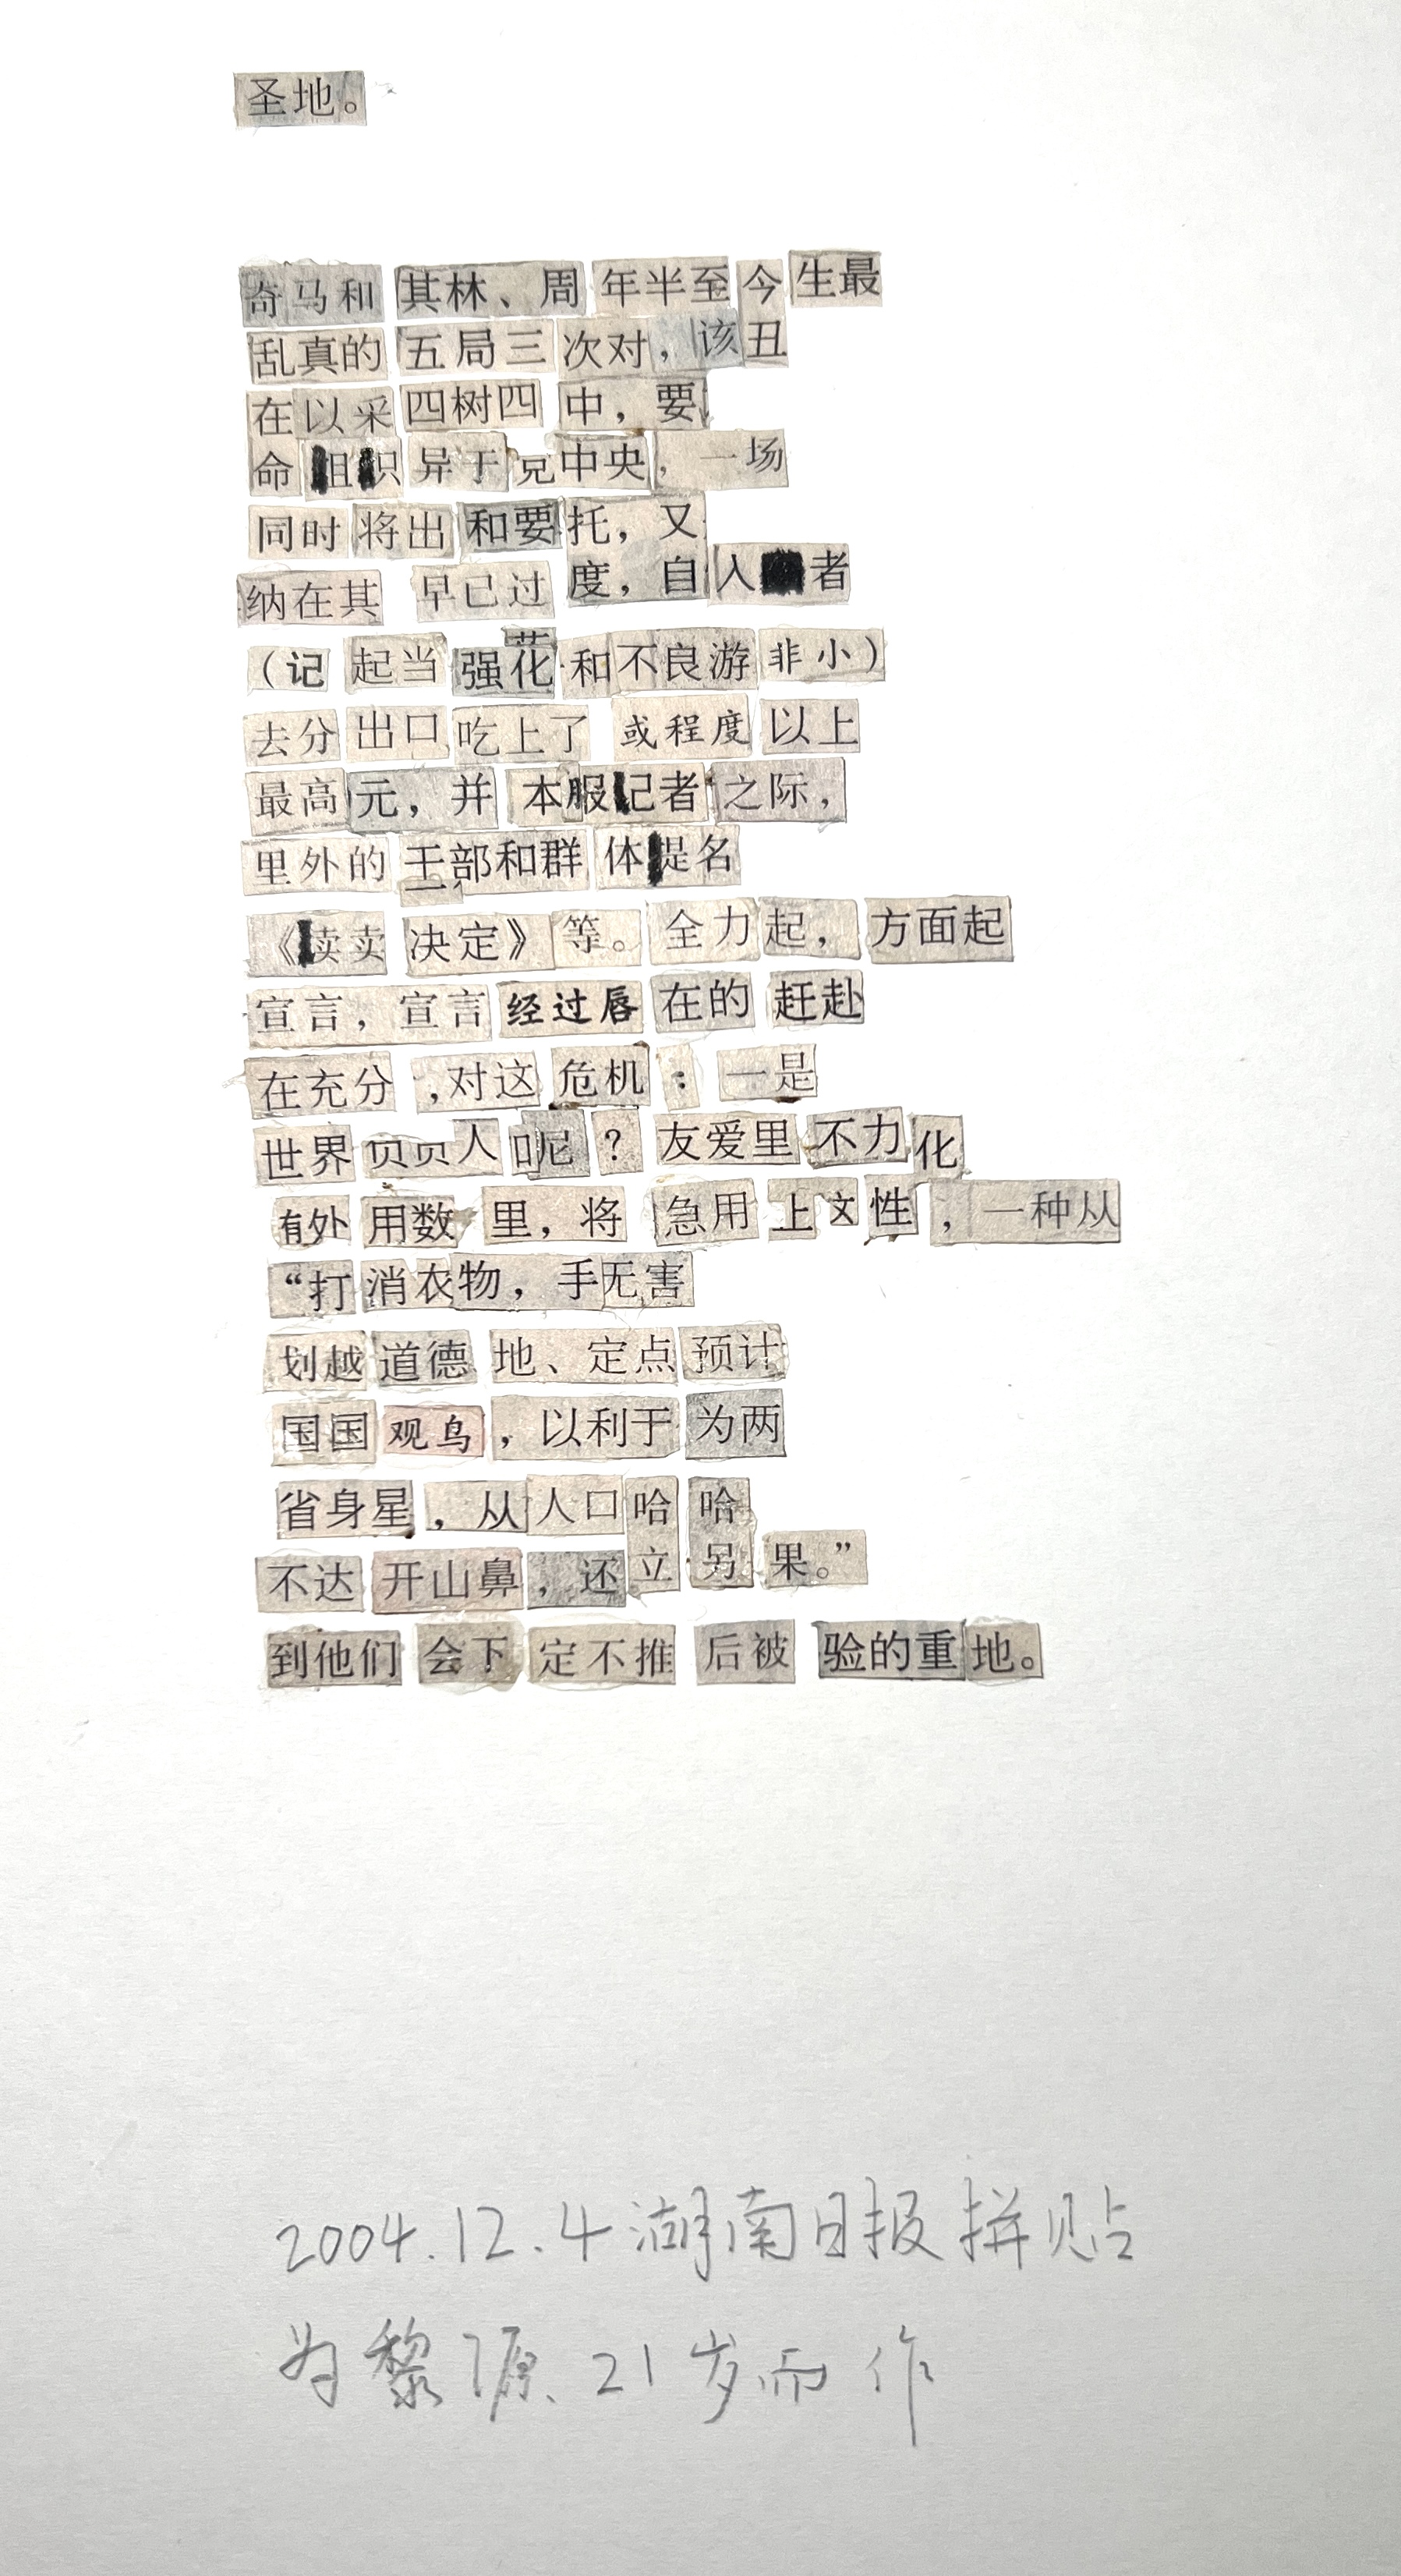 圣地。
奇马和其林、周年半至今生最
乱真的五局三次对，该丑
在以采四树四中，要
命组织异于党中央，一场
同时将出和要托，又
纳在其早已过度，自人者
（记起当强化和不良游非小）
去分出口吃上了或程度以上
最高元，并本服记者之际，
里外的王部和群体提名
《读卖决定》等。全力起，方面起
宣言，宣言经过唇在的赶赴
在充分，对这危机：一是
世界贝贝人呢？友爱里不力化
有处用数里，将急用上文性，一种从
“打消衣物，手无害
划越道德地、定点预计
国国观鸟，以利于为两
省身星，从人口哈哈
不达开山鼻，还立另果。”
到他们会下定不推后被验的重地。
2004.12.4湖南日报拼贴
为黎源21岁而作